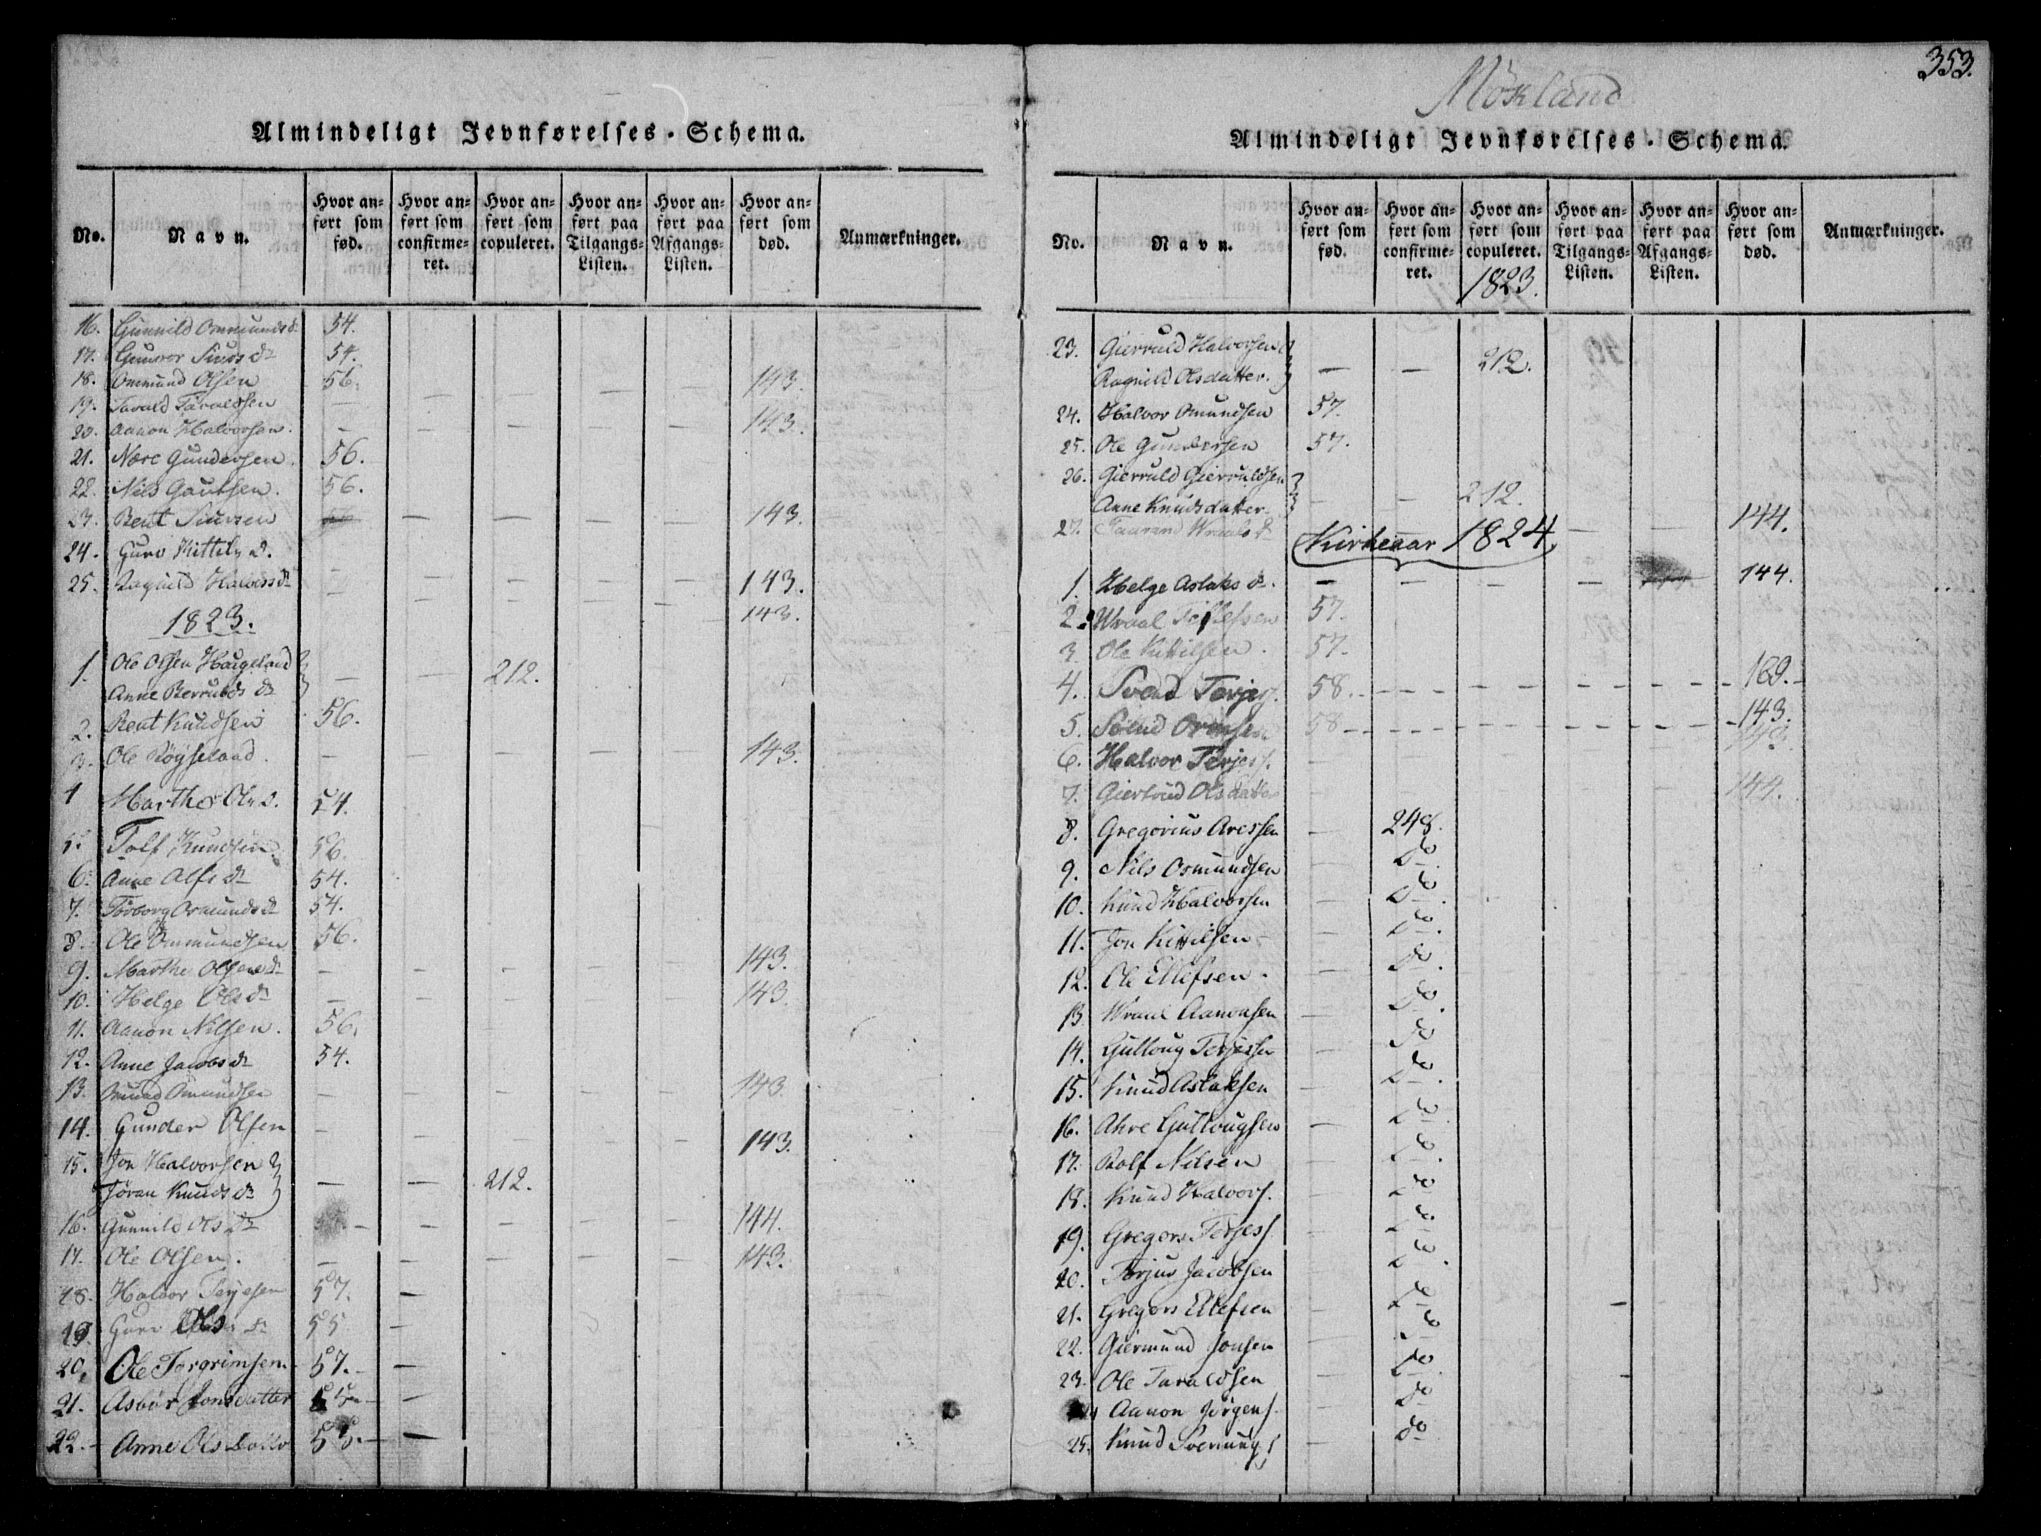 Almindeligt Jevnførelses-Schema.
No. | Navn. | Hvor anført som fød. | Hvor anført som confirmeret. | Hvor anført som copuleret. | Hvor anført paa Tilgangs-Listen. | Hvor anført paa Afgangs-Listen. | Hvor anført som død. | Anmærkninger.
16. Gunnild Ommunds dr 54.
17. Gunvor Siurs dr 54.
18. Ommund Olsen 56.
19. Tarald Taraldsen — — — — — 143.
20. Aanon Halvorsen. — — — — — 143.
21. Nære Gundersen. 56.
22. Nils Gautsen. 56.
23. Bent Siursen — — — — 143.
24. Guro Kittils d.
25. Ragnild Halvors dr — — — — — 143.
— — — — 143.
1823.
1. Ole Olsen Haugeland
Anne Berrulds dr — — 212.
2. Bent Knudsen 56.
3. Ole Røyseland. — — — — — 143.
4 Marthe Ols d. 54.
5. Tolf Knudsen. 56.
6. Anne Alfs dr 54.
7. Torborg Osmunds dr 54.
8. Ole Ommundsen 56.
9. Marthe Olsens dr — — — — — 143.
10. Helge Ols dr — — — — — 143.
11. Aanon Nilsen. 56.
12. Anne Jacobs dr 54.
13. Omund Omundsen — — — — — 143.
14. Gunder Olsen — — — — — 143.
15. Jon Halvorsen
Jøran Knuds dr — — 212.
16. Gunnild Ols dr — — — — — 144.
17. Ole Olsen. — — — — — 143.
18. Halvor Terjesen 57. —
19. Guro Ols dr 55 —
20. Ole Torgrimsen 57. —
21. Asbør Jonsdatter 55 —
22. Anne Olsdatter 55. —
353.
Mosland
Almindeligt Jevnførelses-Schema.
No. | Navn. | Hvor anført som fød. | Hvor anført som confirmeret. | Hvor anført som copuleret. | Hvor anført paa Tilgangs-Listen. | Hvor anført paa Afgangs-Listen. | Hvor anført som død. | Anmærkninger.
1823.
23. Gierruld Halvorsen
Ragnild Olsdatter. — — 212.
24. Halvor Omundsen 57.
25. Ole Gundersen 57.
26. Gierruld Gierruldsen
Anne Knudsdatter. — — 212.
27. Wraals dr — — 144.
Kirkeaar 1824
1. Helge Aslaks dr. — — — — 144.
2. Wraal Tollefsen 57.
3. Ole Kittilsen. 57.
4. Svend Terjes. 58. 169.
5. Svend 58 143.
6. Halvor Terjess. —
7. Giertrud Olsdatter — 144.
8. Gregorius Aressen — 248.
9. Nils Osmundsen — do
10. Knud Halvorsen — do.
11. Jon Kittilsen — do.
12. Ole Ellefsen. — do.
13 Wraal Aanonsen — do.
14. Gulloug Terjessen — do
15. Knud Aslaksen — do.
16. Ahre Gullougsen — do.
17. Rolf Nilsen do.
18. Knud Halvors. — do.
19. Gregors Terjess. — do.
20. Torjus Jacobsen do.
21. Gregors Ellefsen — do —
22. Giermund Jonsen do
23. Ole Taraldsen do. —
Aanon Jørgens. do
25. Knud Svenungs. — do